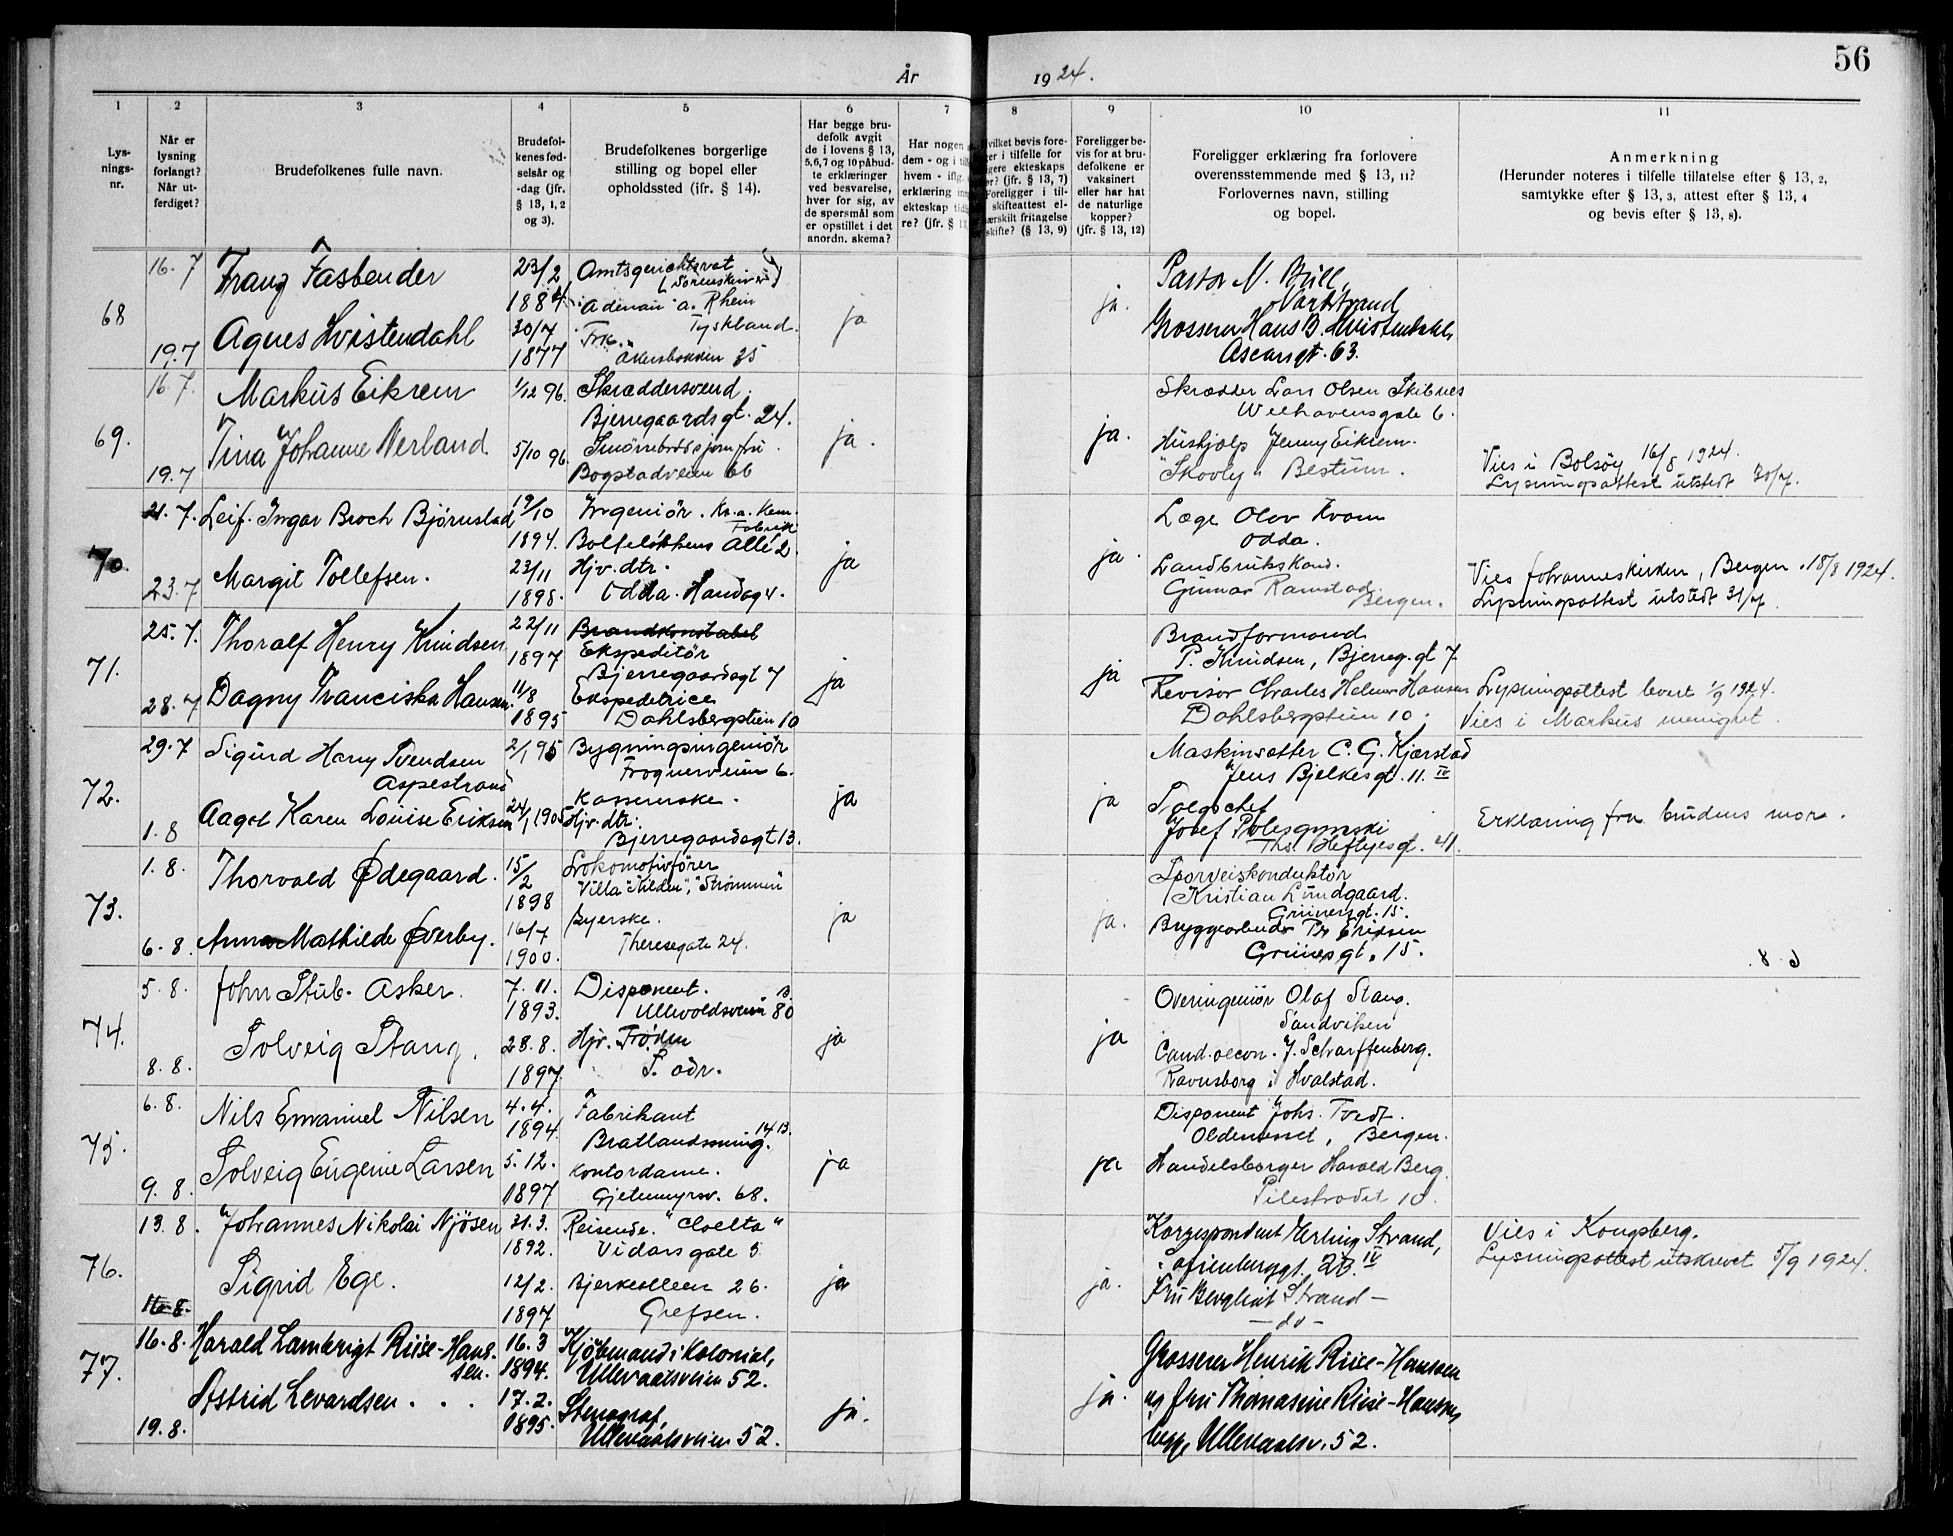 56
År 1924.
1 2 3 4 5 6 7 8 9 10 11
Lys-
nings-
nr.
Når er
lysning
forlangt?
Når ut-
ferdiget?
Brudefolkenes fulle navn.
Brudefol-
kenes fød-
selsår og
-dag (jfr.
§ 13, 1, 2
og 3).
Brudefolkenes borgerlige
stilling og bopel eller
opholdssted (jfr. § 14).
Har begge bru-
defolk avgit
de i lovens § 13,
5,6,7 og 10 påbud-
te erklæringer
ved besvarelse,
hver for sig, av
de spørsmål som
er opstillet i det
anordn. skema?
Har nogen
dem - og i
hvem - iflg.
erklæring
ekteskap
re? (jfr. § 13,
bevis fore-
i tilfelle for
ekteskaps
(jfr. § 13, 7)
Foreligger i til-
skifteattest el-
særskilt fritagelse
skifte? (§ 13, 9)
Foreligger be-
vis for at bru-
defolkene er
vaksinert
eller har hat
de naturlige
kopper?
(jfr. § 13, 12)
Foreligger erklæring fra forlovere
overensstemmende med § 13, 11?
Forlovernes navn, stilling
og bopel.
Anmerkning
(Herunder noteres i tilfelle tillatelse efter § 13, 2,
samtykke efter § 13, 3, attest efter § 13, 4
og bevis efter § 13, 8).
68
16. 7
19.7
Franz Fasbender
Agnes Hvistendahl
23/2
1884
30/7
1877
Amtsgerichtsrat
(Sorenskriver)
Adenau a. Rhein
Tyskland.
Frk.
Akersbakken 35
ja
ja.
Pastor N. Bull,
Grosserer Hans B. Hvistendahl,
63.
69.
16. 7.
19.7
Markus Eikrem
Tina Johanne Nerland
1/12 96.
5/10 96.
Skræddersvend,
Bjerregaardsgt. 24.
Smørrebrødsjomfru.
Bogstadveien 66
ja.
ja.
Skrædder Lars Olsen Skibnes
Welhavensgate 6.
Hushjelp Jenny Eikrem.
"Skovly" Bestum.
Vies i Bolsøy 16/8 1924.
Lysningsattest utstedt 30/7.
70.
21. 7.
23.7
Leif. Ingar Broch Bjørnstad
Margit Tollefsen.
19/10
1894.
23/11
1898.
Ingeniør. Kr.a. Kem.
Fabrik
Bolteløkkens Allé 2.
Hjv. dtr.
Odda. Hardag 4.
ja
ja.
Læge Olav Kvam
Odda.
Landbrukskand.
Gunnar Ramstad
Bergen.
Vies Johanneskirken, Bergen. 18/8 1924.
Lysningsattest utstedt 31/7.
71.
25. 7.
28. 7
Thoralf Henry Knudsen
Dagny Franciska Hansen.
22/11
1897
11/8
1895
Brandkonstabel
Ekspeditør
Bjerregaardsgt 7
Ekspeditrice
Dahlsbergstien 10
ja
ja
Brandformand
P. Knudsen, Bjerreg. gt 7.
Revisor Charles Helmer Hansen
Dahlsbergstien 10.
Lysningsattest levert 1/9 1924.
Vies i Markus menighet.
72.
29. 7
1. 8
Sigurd Harry Svendsen
Aspestrand
Aagot Karen Louise Eriksen
2/1 95
24/1 1905
Bygningsingeniør
Frognerveien 6.
Kassererske.
Hjv. dtr.
Bjerregaardsgt 13.
ja
ja
Maskinsætter C. G. Kjærstad
Jens Bjelkesgt. 11. IV
Salgschef
Josef
Ths. Heftyesgt. 41.
Erklæring fra brudens mor.
73.
1. 8.
6. 8.
Thorvald Ødegaard.
Anna Mathilde Øverby.
15/2
1898
16/7
1900.
Lokomotivfører
Villa "Tilden", "Strømmen"
Byerske.
Theresegate 24.
ja
ja.
Sporveiskonduktør
Kristian Lundgaard.
Grünersgt. 15.
Bryggearbeider
Grünersgt. 15.
74.
5. 8.
8. 8.
John Stub. Asker.
Solveig Stang.
7. 11.
1893.
28. 8.
1897.
Disponent.
Ullevoldsveien 80 B.
Hjv.
S. adr.
ja
ja
Overingeniør Olaf Stang.
Sandviken
Cand. oecon. J. Scharffenberg.
Ravnsborg i Hvalstad.
75.
6. 8.
9. 8.
Nils Emanuel Nilsen
Solveig Eugenie Larsen
4. 4.
1894.
5. 12.
1897
Fabrikant
14 B.
Kontordame.
Gjetemyrsv. 68.
ja
ja
Disponent Johs. Tvedt.
Bergen.
Handelsborger Harald Berg.
Pilestredet 10.
76.
13. 8.
16. 8.
Johannes Nikolai Njøsen
Sigrid Ege.
21. 3.
1892.
12/2.
1897
Reisende. "Cloetta"
Vidars gate 5
Bjerkealleen 26.
Grefsen.
ja
ja.
Korrespondent Erling Strand,
Sofienberggt. 23. IV
Fru Bergliot Strand –
– do –
Vies i Kongsberg.
Lysningsattest utskrevet 5/9 1924.
77.
16. 8.
19. 8.
Harald Lambrigt Riise-Hans-
sen.
Astrid Levardsen. . .
16. 3
1894.
17. 2.
1895.
Kjøbmand i Kolonial,
Ullevaalsveien 52.
Stenograf,
Ullevaalsveien 52.
ja.
ja.
Grosserer Henrik Riise-Hanssen
og fru Thomasine Riise-Hanssen,
begge Ullevaalsv. 52.